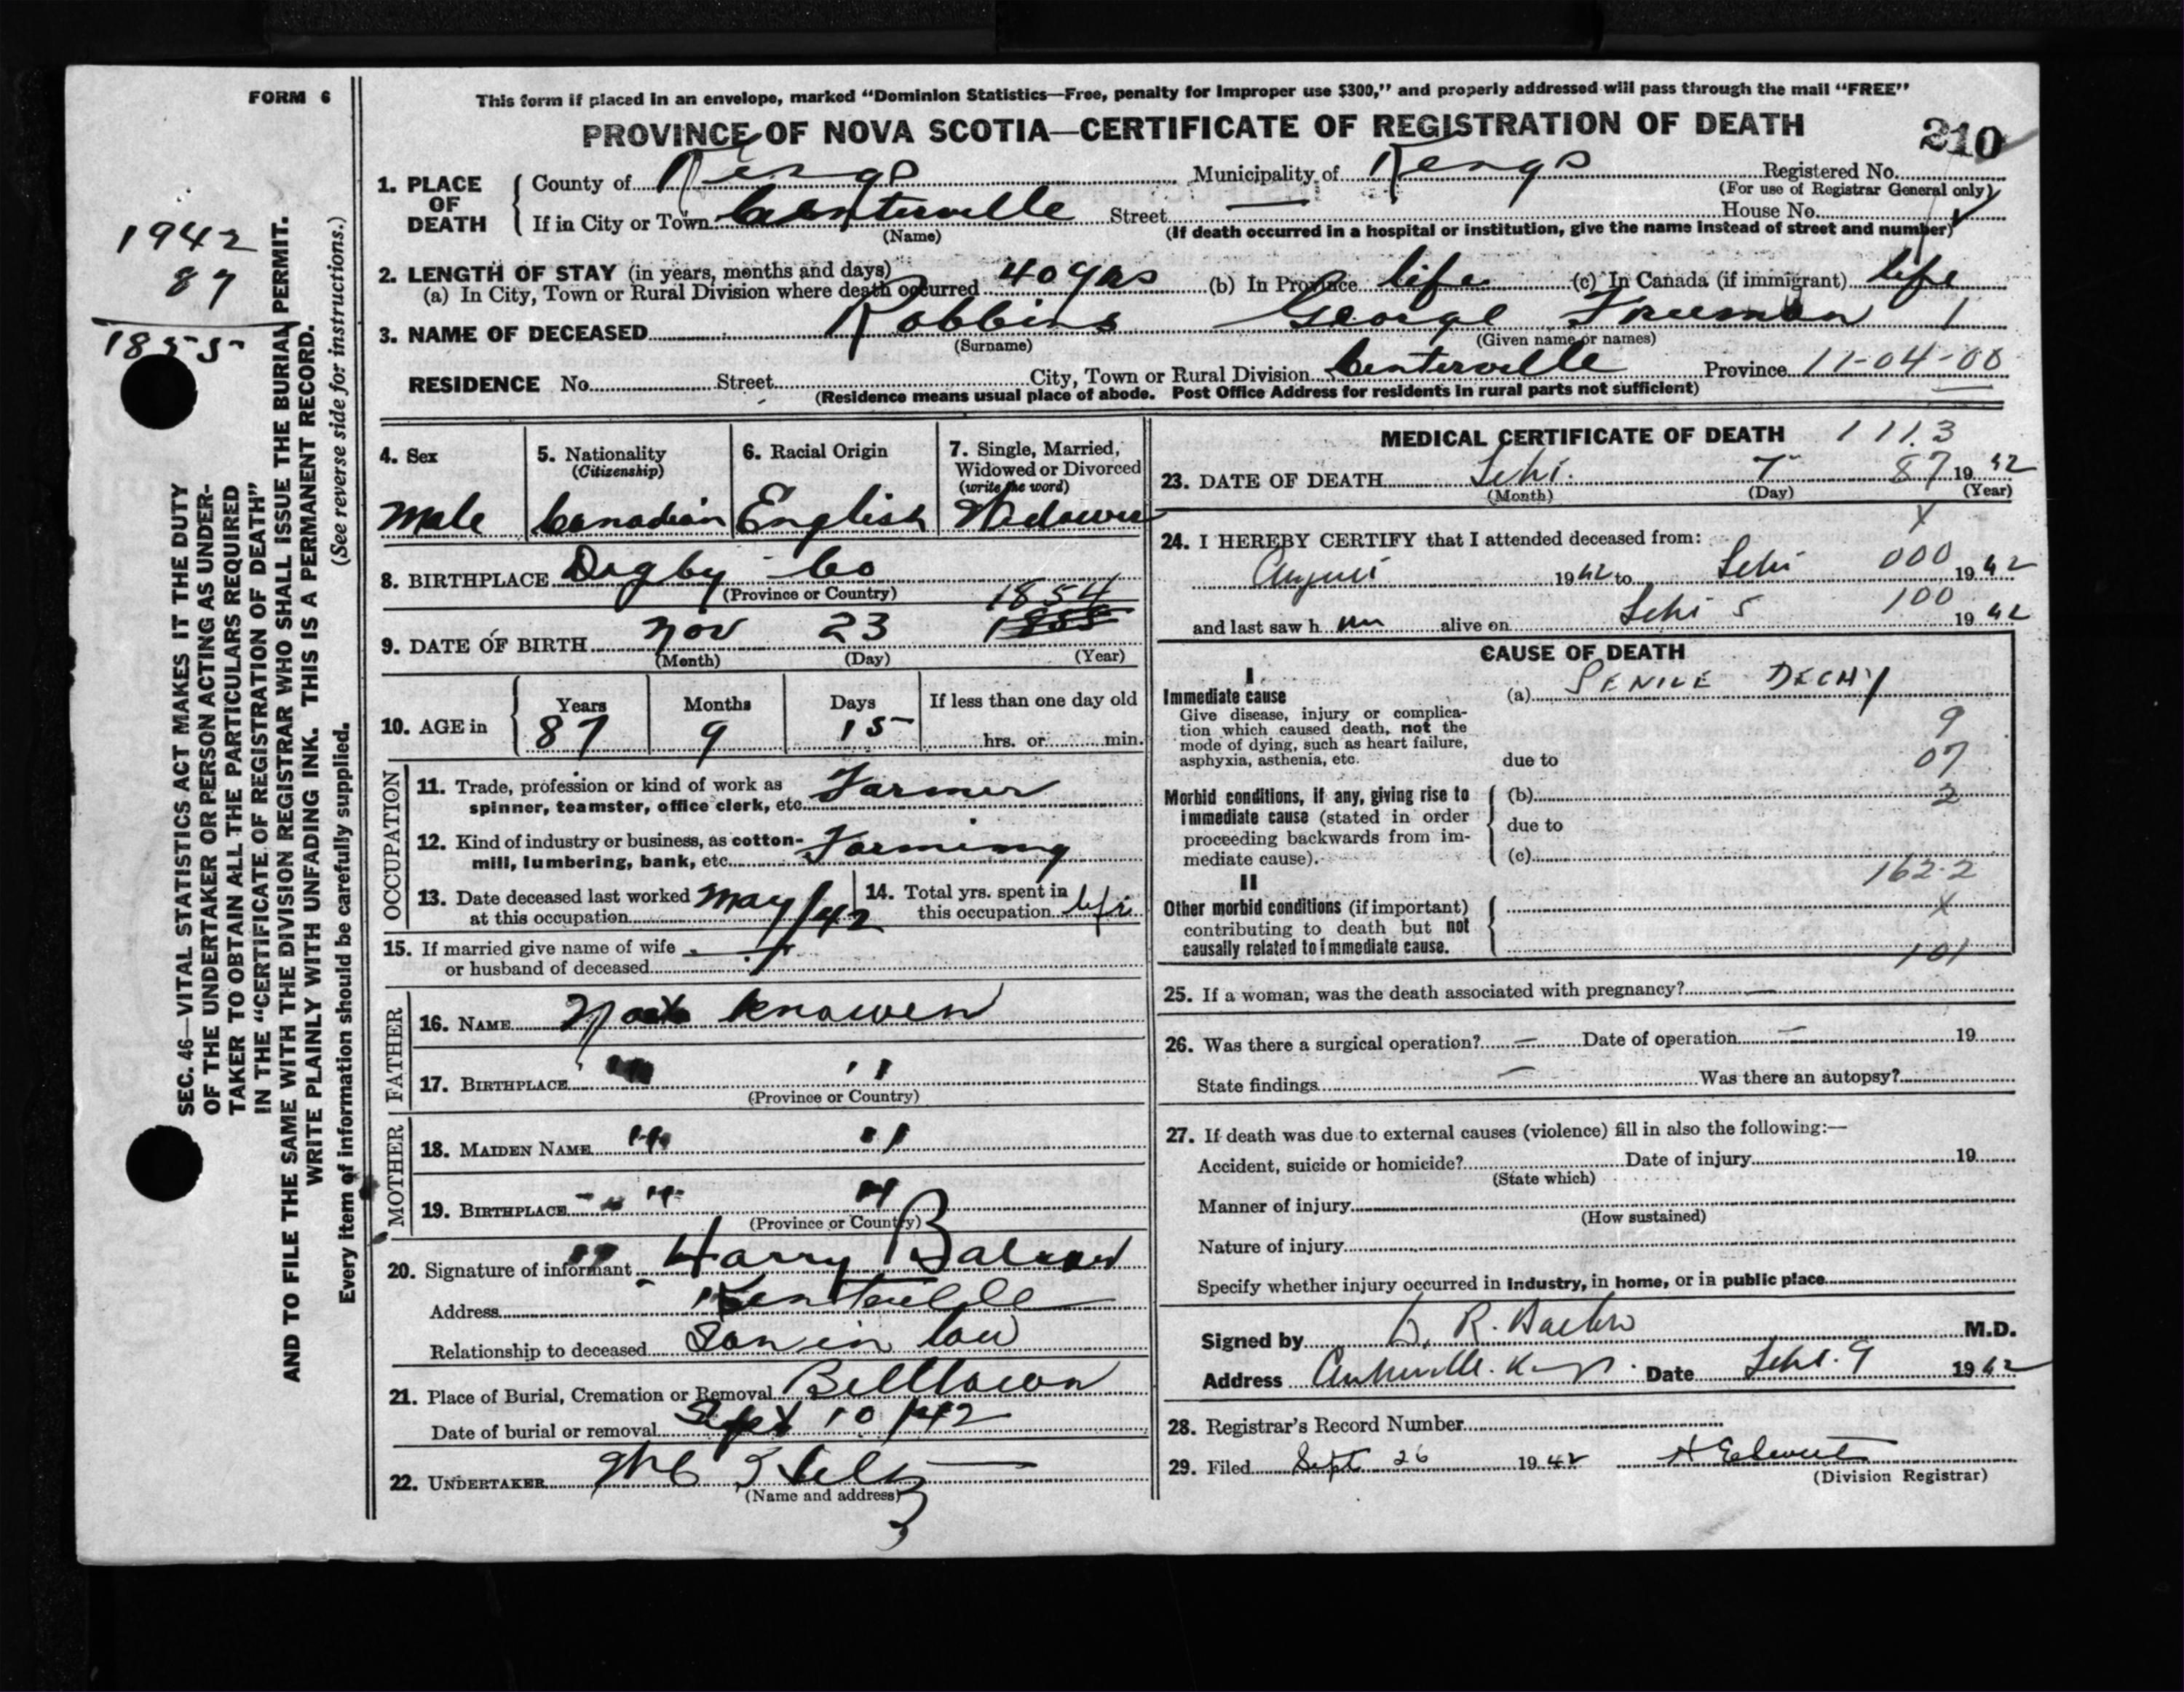 FORM 6
This form if placed in an envelope, marked "Dominion Statistics—Free, penalty for improper use $300," and properly addressed will pass through the mail "FREE"
PROVINCE OF NOVA SCOTIA—CERTIFICATE OF REGISTRATION OF DEATH
210
1942
87
1855
SEC. 46—VITAL STATISTICS ACT MAKES IT THE DUTY
OF THE UNDERTAKER OR PERSON ACTING AS UNDER-
TAKER TO OBTAIN ALL THE PARTICULARS REQUIRED
IN THE "CERTIFICATE OF REGISTRATION OF DEATH"
AND TO FILE THE SAME WITH THE DIVISION REGISTRAR WHO SHALL ISSUE THE BURIAL PERMIT.
WRITE PLAINLY WITH UNFADING INK. THIS IS A PERMANENT RECORD.
Every item of information should be carefully supplied. (See reverse side for instructions.)
1. PLACE OF DEATH
County of Kings Municipality of Kings Registered No.
(For use of Registrar General only)
If in City or Town Centerville Street — House No.
(Name) (If death occurred in a hospital or institution, give the name instead of street and number)
2. LENGTH OF STAY (in years, months and days)
(a) In City, Town or Rural Division where death occurred 40 yrs (b) In Province life (c) In Canada (if immigrant) life
3. NAME OF DECEASED Robbins George Freeman 1
(Surname) (Given name or names)
RESIDENCE No. Street City, Town or Rural Division Centerville Province 11-04-00
(Residence means usual place of abode. Post Office Address for residents in rural parts not sufficient)
4. Sex
Male
5. Nationality
(Citizenship)
Canadian
6. Racial Origin
English
7. Single, Married,
Widowed or Divorced
(write the word)
8. BIRTHPLACE Digby Co
(Province or Country)
1854
9. DATE OF BIRTH Nov 23 1855
(Month) (Day) (Year)
10. AGE in
Years Months Days If less than one day old
87 9 15 hrs. or min.
OCCUPATION
11. Trade, profession or kind of work as
spinner, teamster, office clerk, etc. Farmer
12. Kind of industry or business, as cotton-
mill, lumbering, bank, etc. Farming
13. Date deceased last worked
at this occupation May/42
14. Total yrs. spent in
this occupation life
15. If married give name of wife
or husband of deceased
FATHER
16. NAME Not knowen
17. BIRTHPLACE " "
(Province or Country)
MOTHER
18. MAIDEN NAME " "
19. BIRTHPLACE " "
(Province or Country)
20. Signature of informant Harry
Address
Relationship to deceased Son in law
21. Place of Burial, Cremation or Removal Billtown
Date of burial or removal Sept 10/42
22. UNDERTAKER
(Name and address)
MEDICAL CERTIFICATE OF DEATH 111.3
23. DATE OF DEATH 7 87 1942
(Month) (Day) (Year)
X
24. I HEREBY CERTIFY that I attended deceased from:
August 1942 to 000 1942
and last saw h alive on 5 100 1942
CAUSE OF DEATH
I
Immediate cause
Give disease, injury or complica-
tion which caused death, not the
mode of dying, such as heart failure,
asphyxia, asthenia, etc.
(a) SENILE DECAY
9
due to 07
Morbid conditions, if any, giving rise to
immediate cause (stated in order
proceeding backwards from im-
mediate cause).
(b) 2
due to
(c)
162.2
II
Other morbid conditions (if important)
contributing to death but not
causally related to immediate cause.
X
101
25. If a woman, was the death associated with pregnancy? —
26. Was there a surgical operation? — Date of operation — 19
State findings — Was there an autopsy?
27. If death was due to external causes (violence) fill in also the following:—
Accident, suicide or homicide? Date of injury 19
(State which)
Manner of injury
(How sustained)
Nature of injury
Specify whether injury occurred in industry, in home, or in public place
Signed by M.D.
Address Date Sept. 9 1942
28. Registrar's Record Number
29. Filed Sept 26 1942
(Division Registrar)